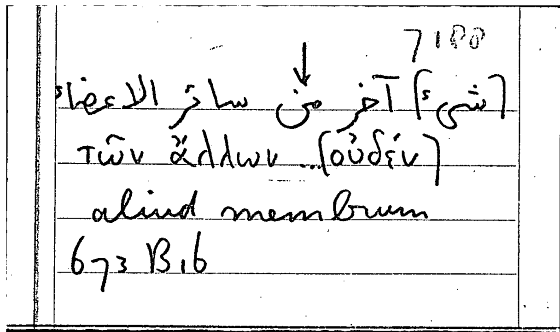 7188
[شيء] آخر من سائر الاعضاء
τῶν ἄλλων ... [οὐδέν]
aliud membrum
673 B,6